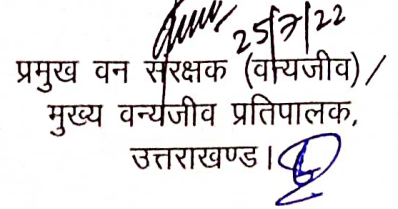 25/7/22
प्रमुख वन संरक्षक (वन्यजीव) /
मुख्य वन्यजीव प्रतिपालक,
उत्तराखण्ड।